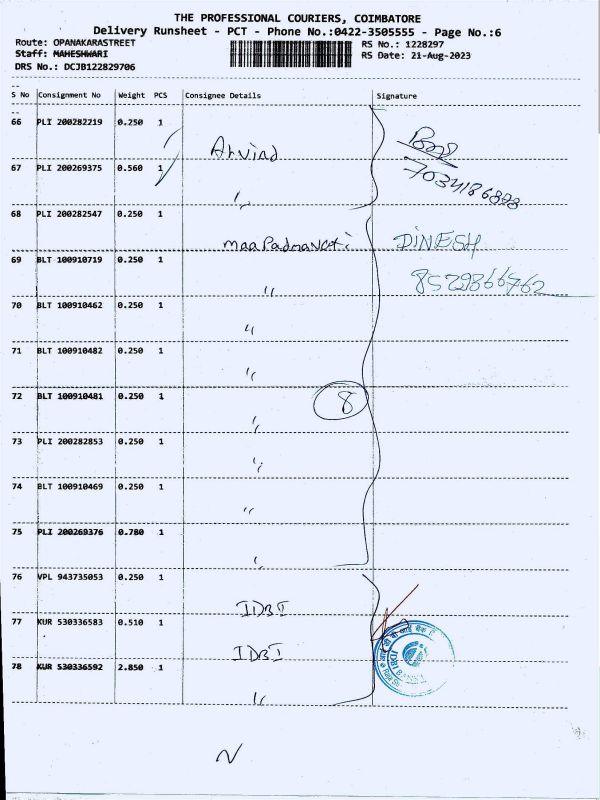 THE PROFESSIONAL COURIERS, COIMBATORE
Delivery Runsheet - PCT - Phone No.:0422-3505555 - Page No.:6
Route: OPANAKARASTREET
RS No.: 1228297
Staff: MAHESHWARI
RS Date: 21-Aug-2023
DRS No.: DCJB122829706
S No Consignment No Weight PCS Consignee Details Signature
66 PLI 200282219 0.250 1
Arvind
67 PLI 200269375 0.560 1
〃
68 PLI 200282547 0.250 1
maa Padmavati DINESH
69 BLT 100910719 0.250 1
〃 8529866762
70 BLT 100910462 0.250 1
〃
71 BLT 100910482 0.250 1
〃
72 BLT 100910481 0.250 1 8
〃
73 PLI 200282853 0.250 1
〃
74 BLT 100910469 0.250 1
〃
75 PLI 200269376 0.780 1
76 VPL 943735053 0.250 1
IDBI
77 KUR 530336583 0.510 1
IDBI
78 KUR 530336592 2.850 1
〃
IDBI BANK
N